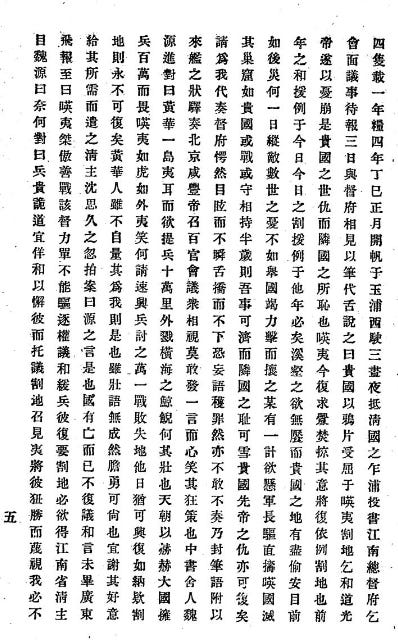 四隻載一年糧四年丁巳正月開帆于玉浦西駛三晝夜抵清國之乍浦投書江南總督府乞
會面議事待報三日與督府相見以筆代舌說之曰貴國以鴉片受屈于暎夷割地乞和道光
帝遂以憂崩是貴國之世仇而隣國之所恥也暎夷今復求釁焚掠其意將復依例割地也前
年之和援例于今日今日之割援例于他年必矣溪壑之欲無厭而貴國之地有盡偸安目前
如後災何一日縱敵數世之憂不如舉國竭力擊而攘之某有一計欲懸軍長驅直搗暎國滅
其巢窟如貴國或戰或守相持半歲則吾事可濟而隣國之恥可雪貴國先帝之仇亦可復矣
請爲我代奏督府愕然目眩而不瞬舌撟而不下恐妄語穫罪然亦不敢不奏乃封筆語附以
來艦之狀驛奏北京咸豐帝召百官會議衆相視莫敢發一言而心笑其狂策也中書舍人魏
源進對曰黃華一島夷耳而欲提兵十萬里外戮橫海之鯨鯢何其壯也天朝以赫赫大國擁
兵百萬而畏暎夷如虎如外夷笑何請速興兵討之萬一戰敗失地他日猶可興復如納欵割
地則永不可復矣黃華人雖不自量其爲我則是也雖壯語無成然膽勇可尙也宜謝其好意
給其所需而遣之清主沈思久之忽拍案曰源之言是也國有亡而已不復議和言未畢廣東
飛報至曰暎夷桀傲善戰該督力單不能驅逐權議和緩兵彼復要割地必欲得江南省清主
目魏源曰奈何對曰兵貴詭道宜佯和以懈彼而托議割地召見夷將彼狃勝而蔑視我必不
五